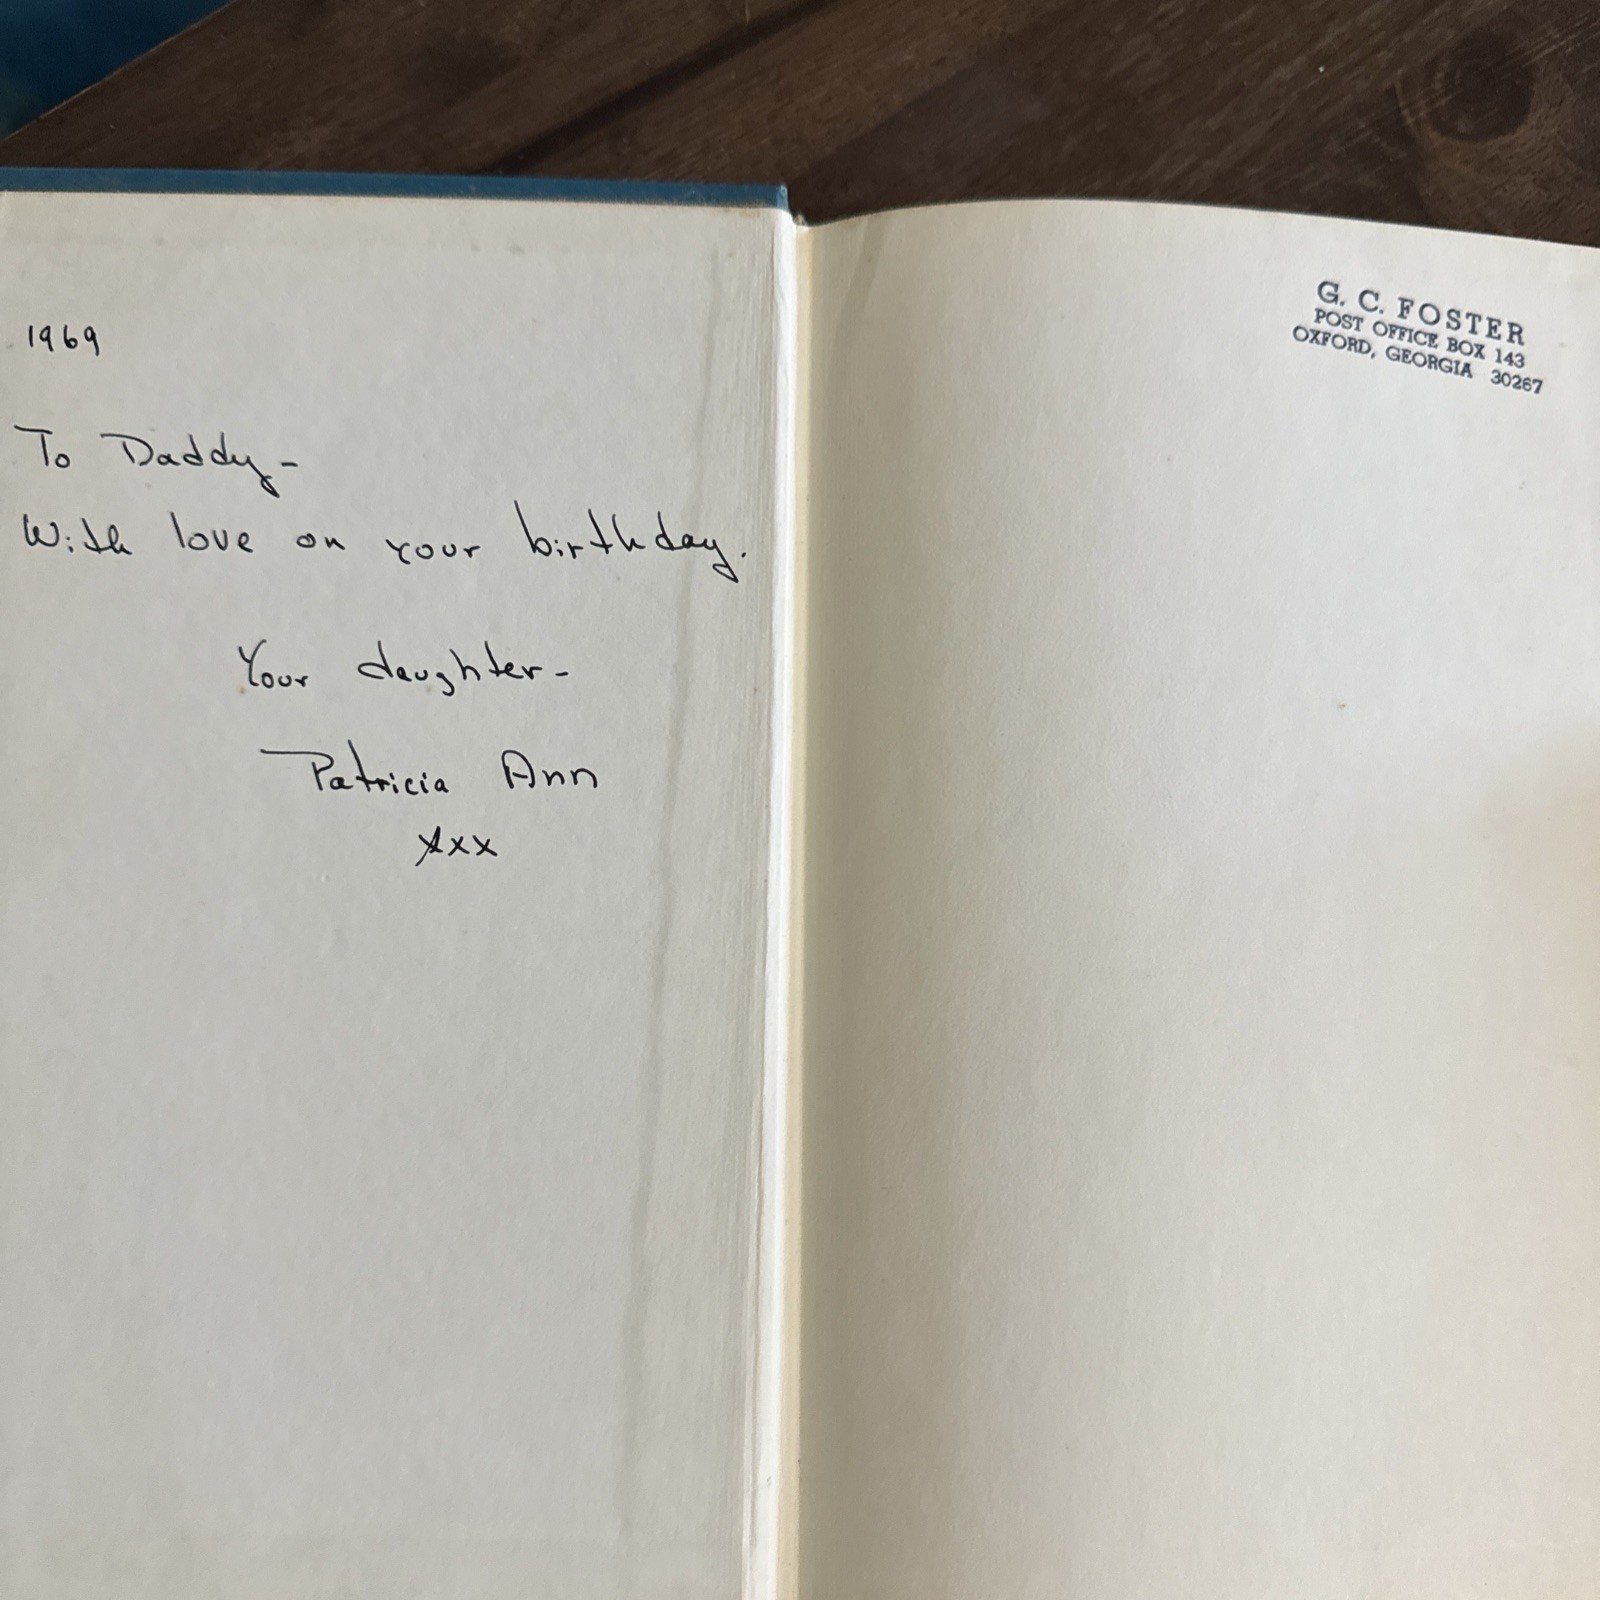 1969
To Daddy-
With love on your birthday.
Your daughter-
Patricia Ann
xxx
G. C. FOSTER
POST OFFICE BOX 143
OXFORD, GEORGIA 30267